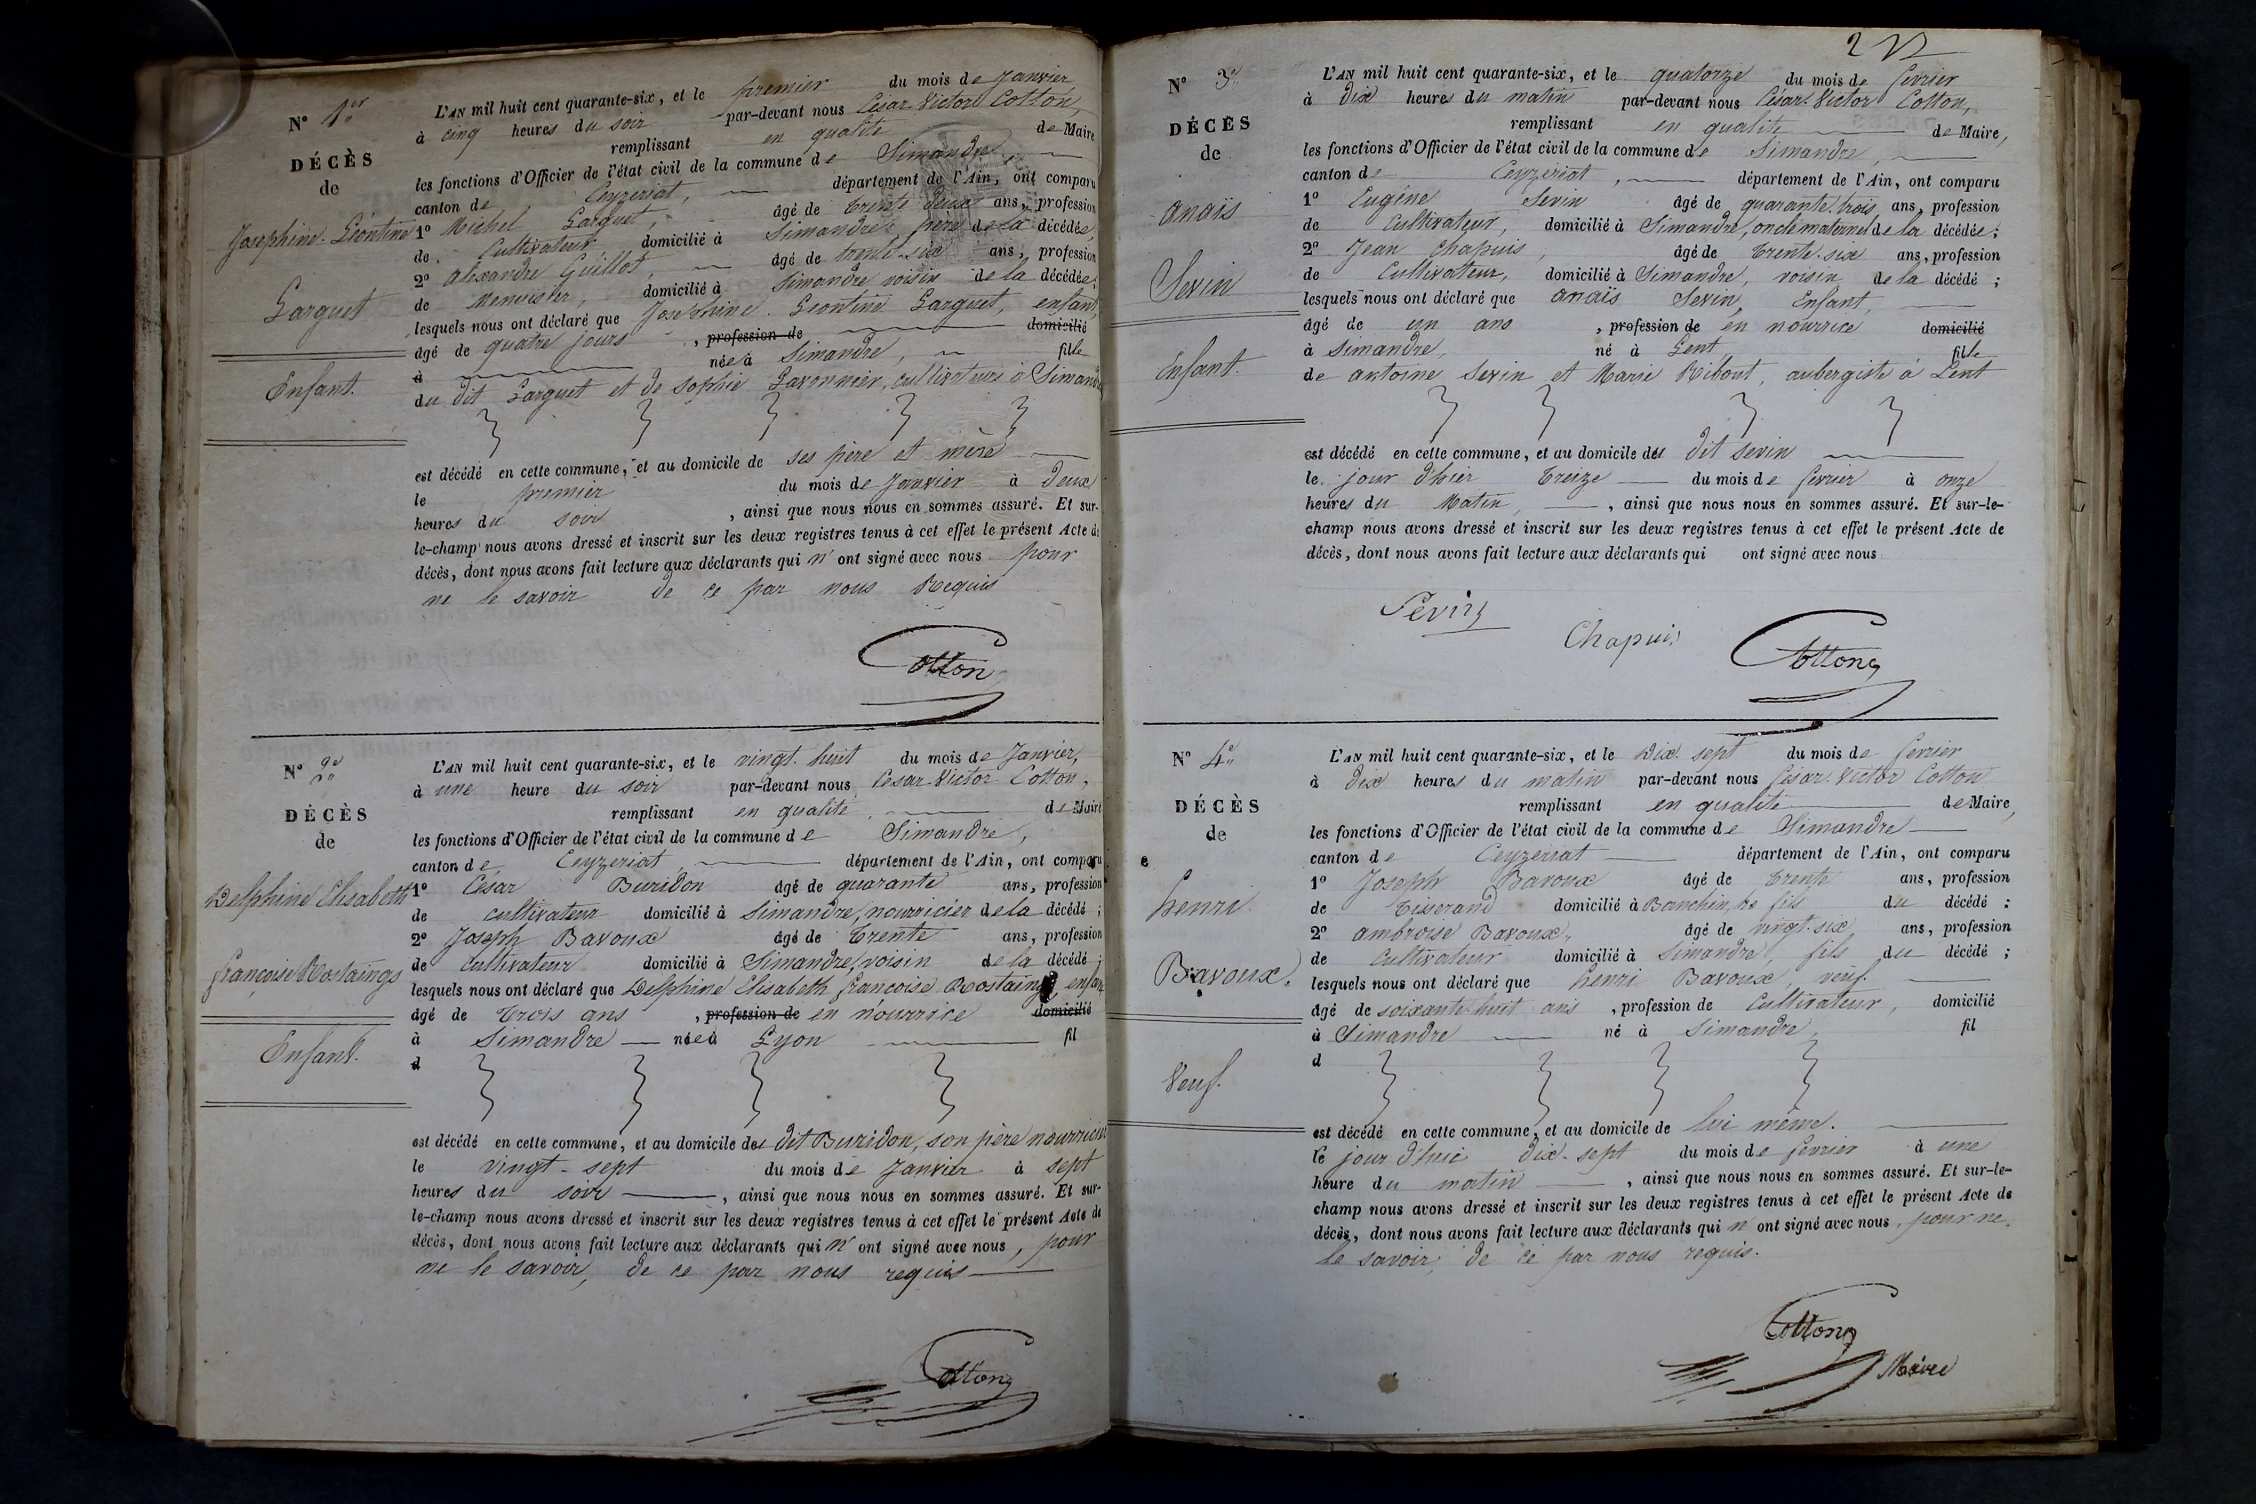 N° 1er
DÉCÈS
de
Josephine Léontine
Larguet
Enfant.
L'AN mil huit cent quarante-six, et le premier du mois de Janvier
à cinq heures du soir par-devant nous César Victor Cotton
remplissant en qualité de Maire
les fonctions d'Officier de l'état civil de la commune de Simandre,
canton de Ceyzeriat, département de l'Ain, ont comparu
1° Michel Larguet, âgé de trente deux ans, profession
de Cultivateur domicilié à Simandre, père de la décédée,
2° Alexandre Guillot, âgé de trente-six ans, profession
de Menuisier, domicilié à Simandre voisin de la décédée;
lesquels nous ont déclaré que Josephine Léontine Larguet, enfant,
âgé de quatre jours, profession de domicilié
à née à Simandre, fille
du dit Larguet et de Sophie cultivateurs à Simandre
est décédé en cette commune, et au domicile de ses père et mère
le premier du mois de Janvier à deux
heures du soir, ainsi que nous nous en sommes assuré. Et sur-
le-champ nous avons dressé et inscrit sur les deux registres tenus à cet effet le présent Acte de
décès, dont nous avons fait lecture aux déclarants qui n'ont signé avec nous pour
ne le savoir de ce par nous Requis
Cotton
N° 2e
DÉCÈS
de
Delphine Elisabeth
françoise Rostaings
Enfant.
L'AN mil huit cent quarante-six, et le vingt-huit du mois de Janvier,
à une heure du soir par-devant nous César-Victor Cotton,
remplissant en qualité de Maire
les fonctions d'Officier de l'état civil de la commune de Simandre,
canton de Ceyzeriat, département de l'Ain, ont comparu
1° César Buridon âgé de quarante ans, profession
de cultivateur domicilié à Simandre, nourricier de la décédé;
2° Joseph Bavoux âgé de trente ans, profession
de cultivateur domicilié à Simandre, voisin de la décédé;
lesquels nous ont déclaré que Delphine Elisabeth françoise Rostaings enfant
âgé de trois ans, profession de en nourrice domicilié
à Simandre née à Lyon fil
d
est décédé en cette commune, et au domicile du dit Buridon, son père nourricier
le vingt-sept du mois de Janvier à sept
heures du soir, ainsi que nous nous en sommes assuré. Et sur-
le-champ nous avons dressé et inscrit sur les deux registres tenus à cet effet le présent Acte de
décès, dont nous avons fait lecture aux déclarants qui n'ont signé avec nous, pour
ne le savoir, de ce par nous requis
Cotton
2
N° 3e
DÉCÈS
de
anaïs
Sevin
Enfant.
L'AN mil huit cent quarante-six, et le quatorze du mois de fevrier
à dix heures du matin par-devant nous César-Victor Cotton,
remplissant en qualité de Maire,
les fonctions d'Officier de l'état civil de la commune de Simandre,
canton de Ceyzeriat, département de l'Ain, ont comparu
1° Eugène Sevin âgé de quarante-trois ans, profession
de cultivateur, domicilié à Simandre, oncle maternel de la décédée;
2° Jean Chapuis, âgé de trente-six ans, profession
de cultivateur, domicilié à Simandre, voisin de la décédé;
lesquels nous ont déclaré que anaïs Sevin, Enfant,
âgé de un ans, profession de en nourrice domicilié
à Simandre, né à Lent fille
de antoine Sevin et Marie Ribout, aubergiste à Lent
est décédé en cette commune, et au domicile du dit Sevin
le jour d'hier treize du mois de fevrier à onze
heures du Matin, ainsi que nous nous en sommes assuré. Et sur-le-
champ nous avons dressé et inscrit sur les deux registres tenus à cet effet le présent Acte de
décès, dont nous avons fait lecture aux déclarants qui ont signé avec nous
Sevin
Chapuis
Cotton
N° 4e
DÉCÈS
de
henri
Bavoux.
Veuf.
L'AN mil huit cent quarante-six, et le Dix-sept du mois de fevrier
à dix heures du matin par-devant nous César-Victor Cotton
remplissant en qualité de Maire,
les fonctions d'Officier de l'état civil de la commune de Simandre
canton de Ceyzeriat département de l'Ain, ont comparu
1° Joseph Bavoux âgé de trente ans, profession
de tisserand domicilié à fils du décédé;
2° ambroise Bavoux, âgé de vingt-six ans, profession
de cultivateur domicilié à Simandre, fils du décédé;
lesquels nous ont déclaré que henri Bavoux, veuf
âgé de soixante-huit ans, profession de Cultivateur, domicilié
à Simandre né à Simandre, fil
d
est décédé en cette commune, et au domicile de lui même.
le jour d'hui dix-sept du mois de fevrier à une
heure du matin, ainsi que nous nous en sommes assuré. Et sur-le-
champ nous avons dressé et inscrit sur les deux registres tenus à cet effet le présent Acte de
décès, dont nous avons fait lecture aux déclarants qui n'ont signé avec nous, pour ne
le savoir, de ce par nous requis.
Cotton
Maire